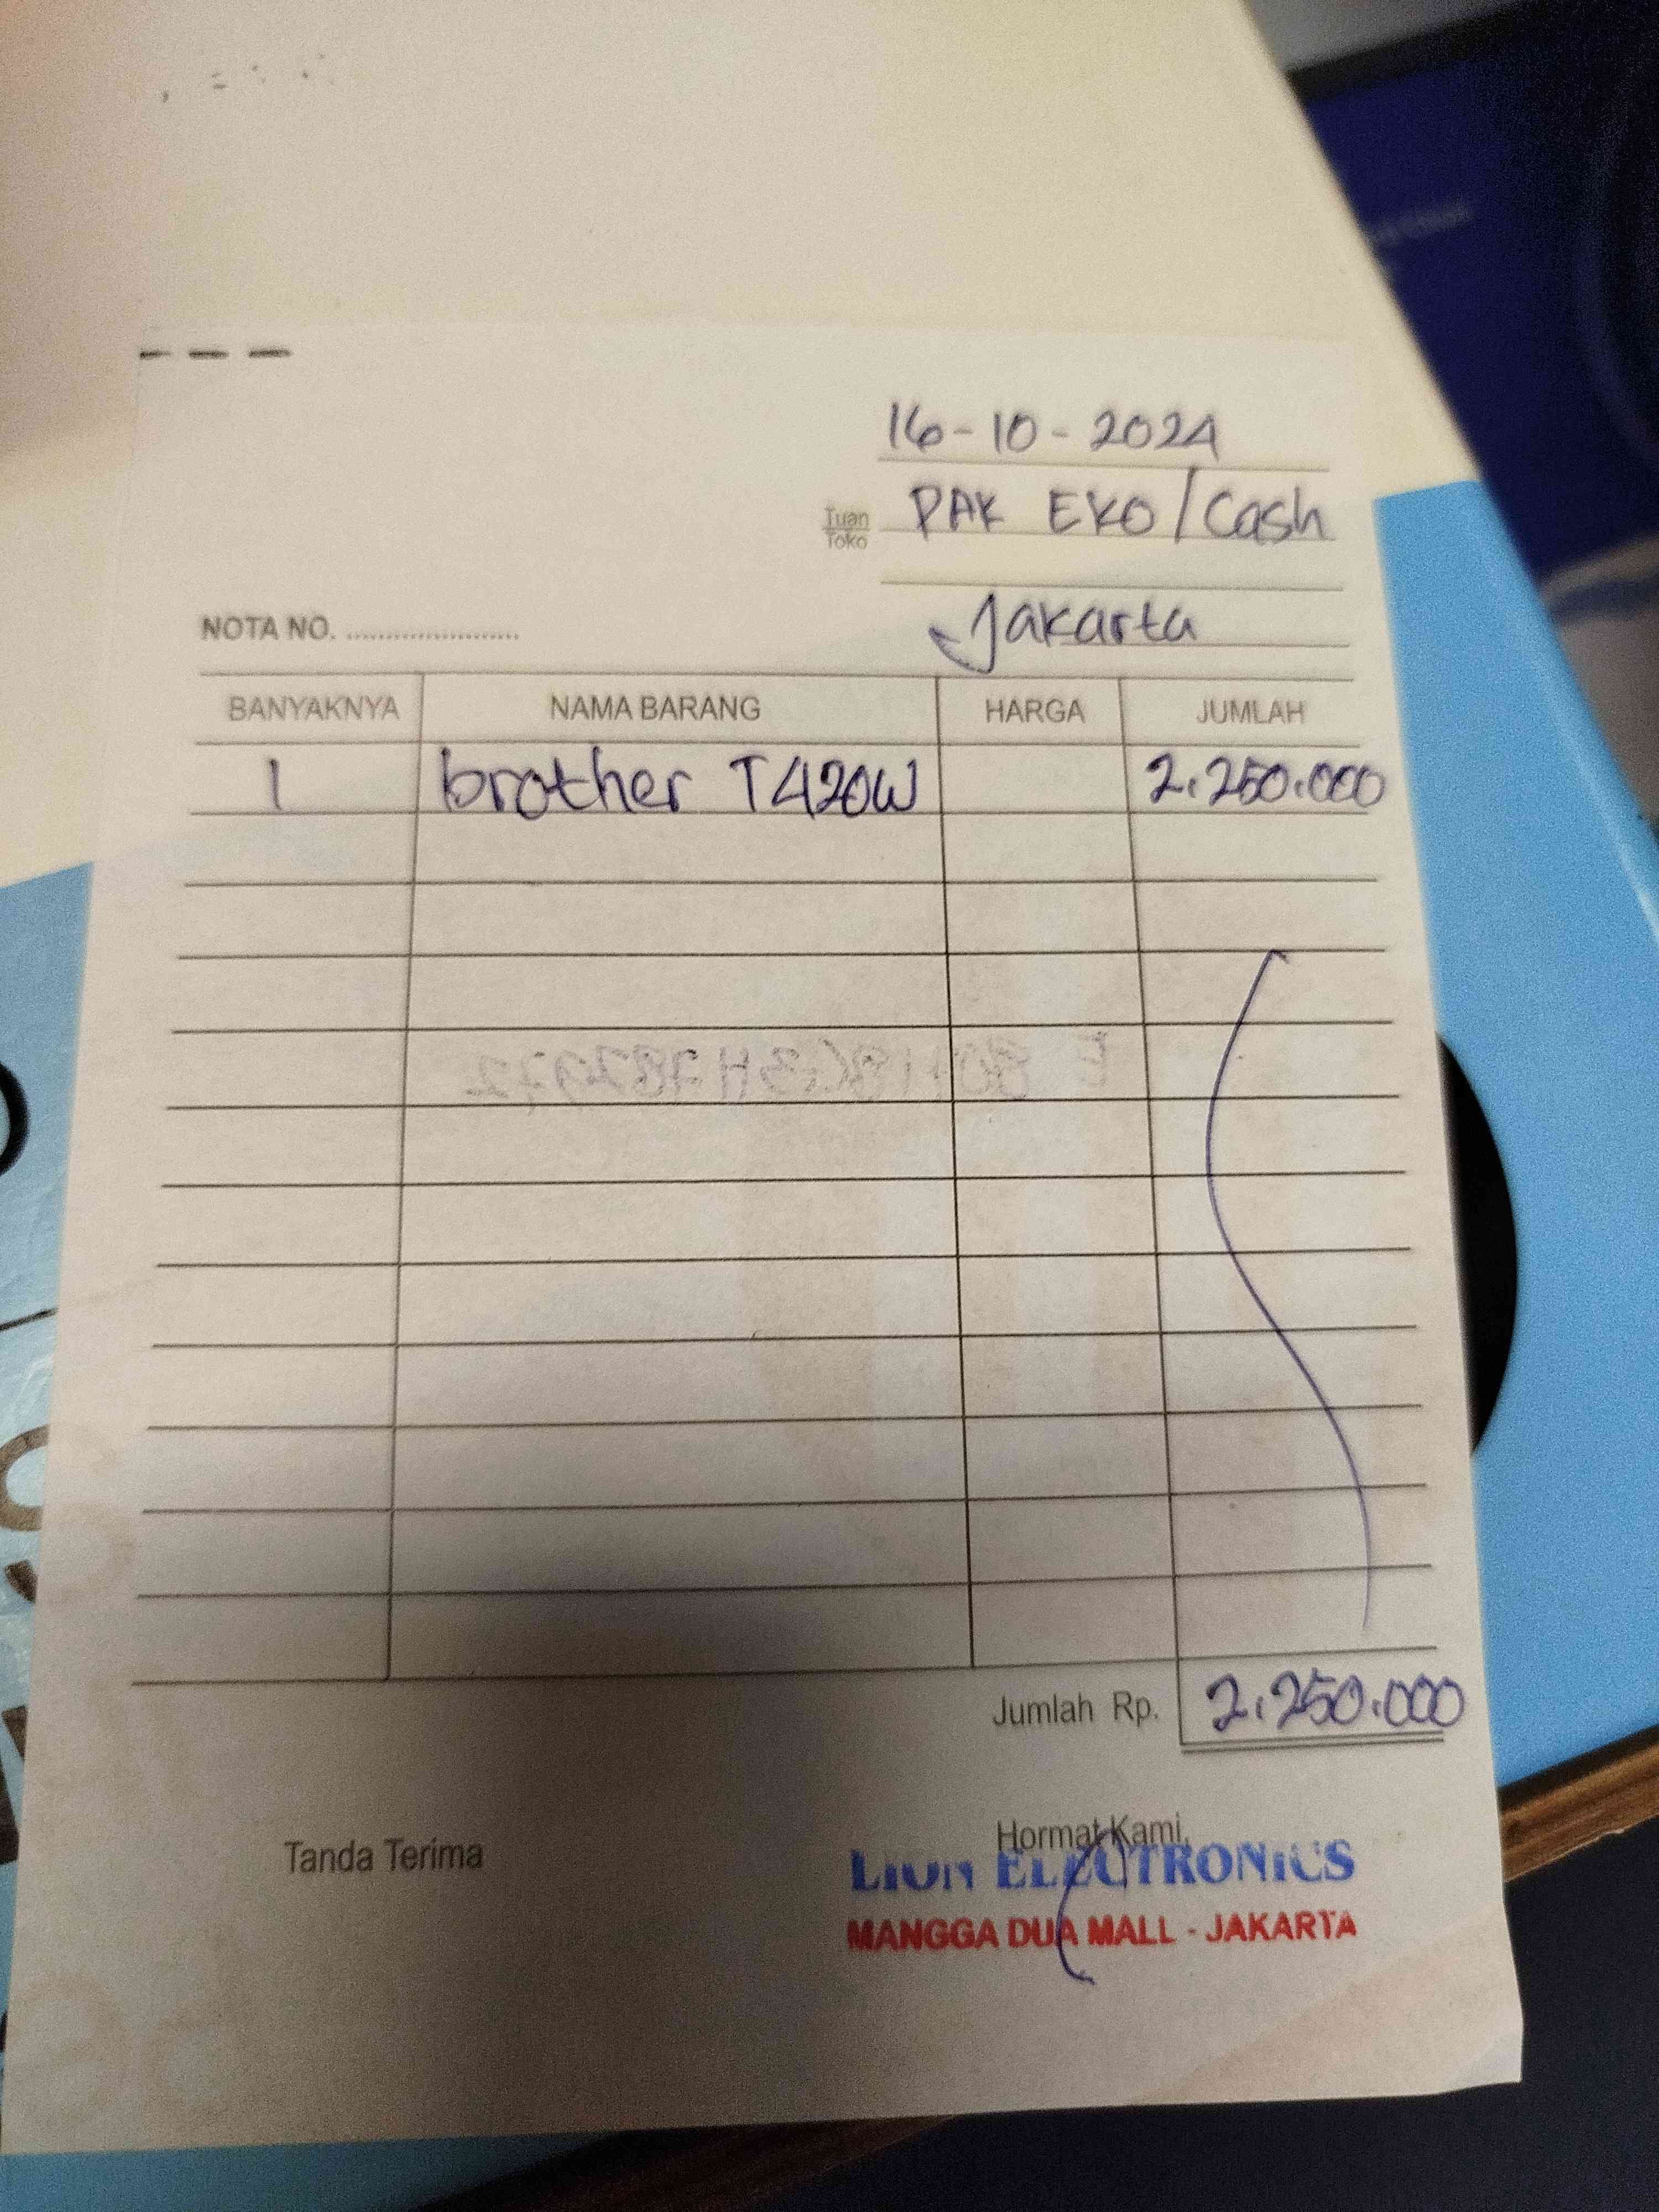 16-10-2024
Tuan
Toko
PAK EKO/Cash
NOTA NO. ........................
Jakarta
BANYAKNYA NAMA BARANG HARGA JUMLAH
1 brother T420W 2.250.000
Jumlah Rp. 2.250.000
Tanda Terima
Hormat Kami,
LION ELECTRONICS
MANGGA DUA MALL - JAKARTA